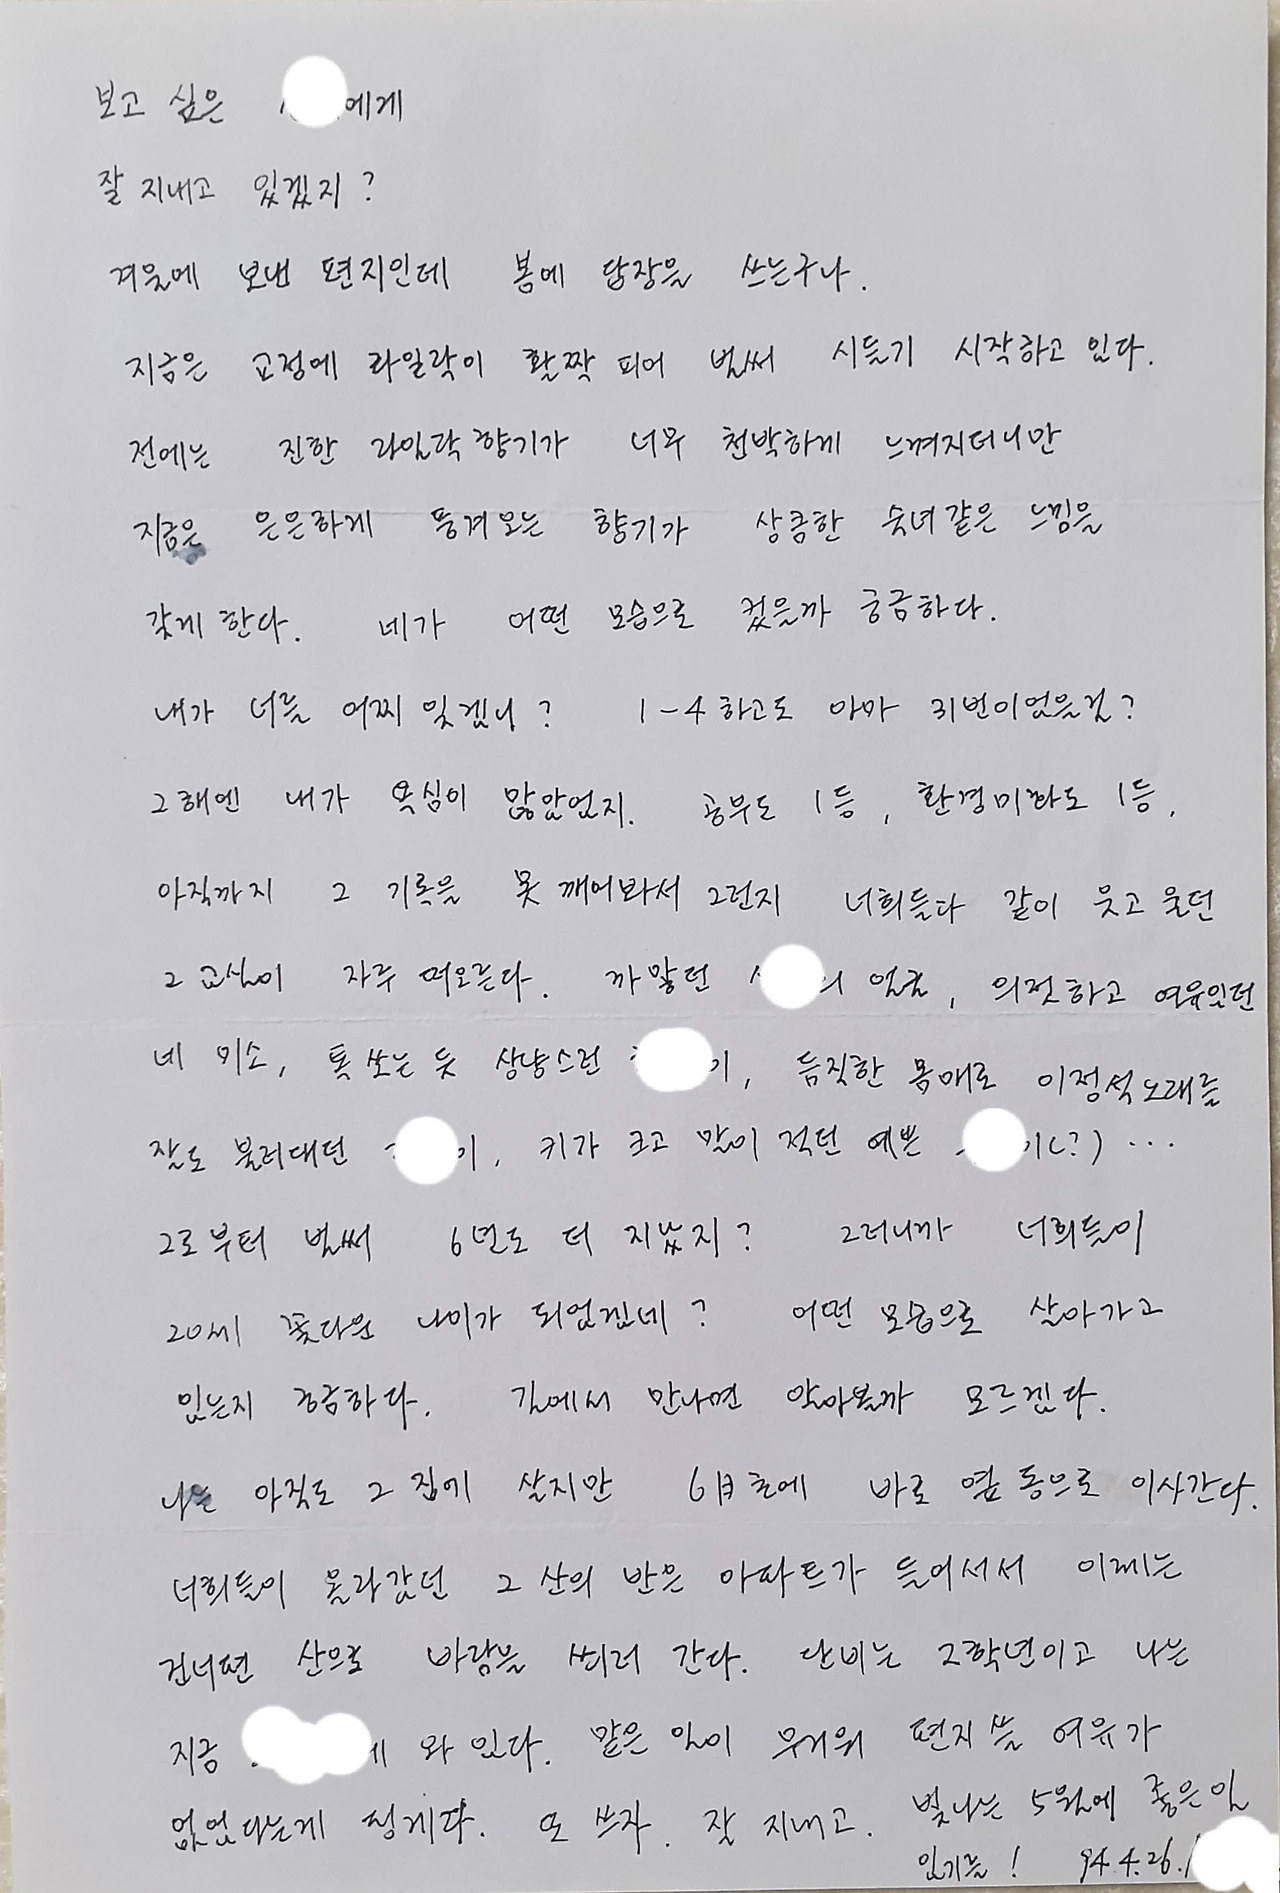 보고 싶은 에게
잘 지내고 있겠지?
겨울에 보낸 편지인데 봄에 답장을 쓰는구나.
지금은 교정에 라일락이 활짝 피어 벌써 시들기 시작하고 있다.
전에는 진한 라일락 향기가 너무 천박하게 느껴지더니만
지금은 은은하게 풍겨오는 향기가 상큼한 숙녀같은 느낌을
갖게 한다. 네가 어떤 모습으로 컸을까 궁금하다.
내가 너를 어찌 잊겠니? 1-4 하고도 아마 31번이었을걸?
그해엔 내가 욕심이 많았었지. 공부도 1등, 환경미화도 1등,
아직까지 그 기록을 못 깨어봐서 그런지 너희들과 같이 웃고 울던
그 교실이 자주 떠오른다. 까맣던 의 얼굴, 의젓하고 여유있던
네 미소, 톡 쏘는 듯 상냥스런 이, 듬직한 몸매로 이정석 노래를
잘도 불러대던 이, 키가 크고 말이 적던 예쁜 이(?) ...
그로부터 벌써 6년도 더 지났지? 그러니까 너희들이
20세 꽃다운 나이가 되었겠네? 어떤 모습으로 살아가고
있는지 궁금하다. 길에서 만나면 알아볼까 모르겠다.
나는 아직도 그 집에 살지만 6月초에 바로 옆 동으로 이사간다.
너희들이 올라갔던 그 산의 반은 아파트가 들어서서 이제는
건너편 산으로 바람을 쐬러 간다. 단비는 2학년이고 나는
지금 에 와 있다. 맡은 일이 무거워 편지 쓸 여유가
없었다는게 핑게다. 또 쓰자. 잘 지내고. 빛나는 5월에 좋은일
있기를! 94.4.26.